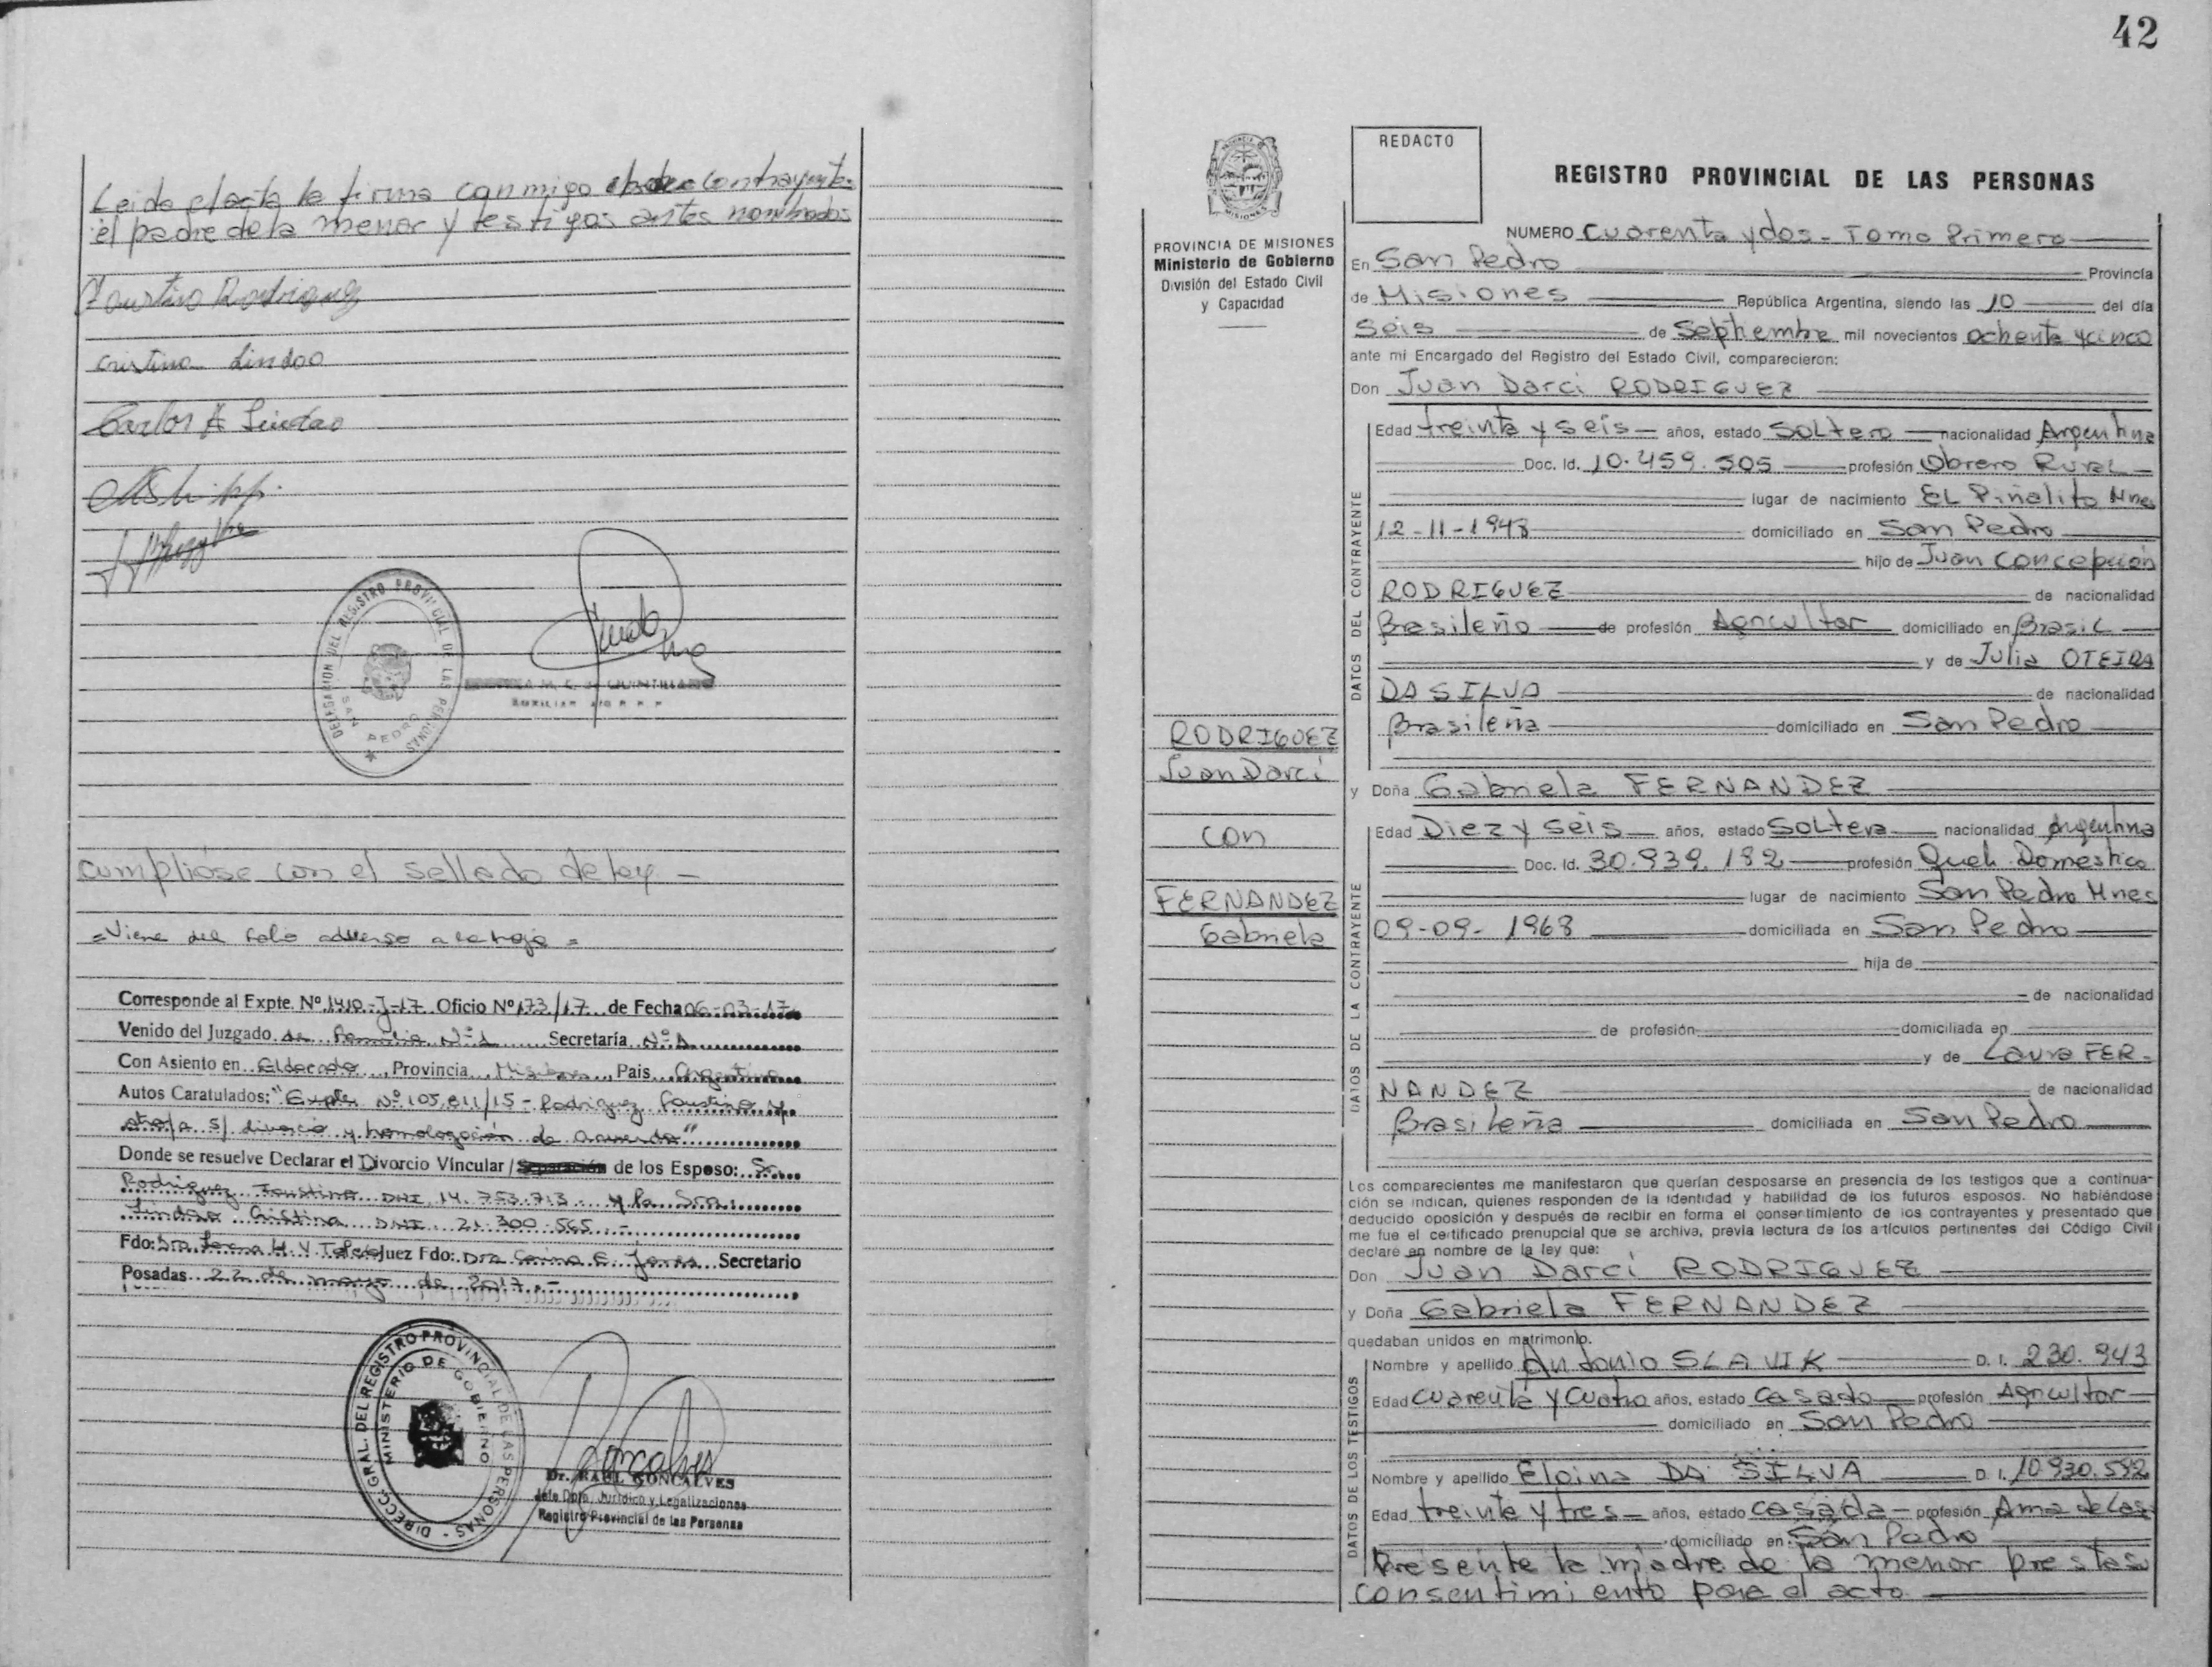 Leida el acta la firma conmigo contrayentes
el padre de la menor y testigos antes nombrados
Faustino Rodriguez
Cristina Lindao
Carlos A Lindao
DELEGACION DEL REGISTRO PROVINCIAL DE LAS PERSONAS
SAN PEDRO
QUINTILIANO
AUXILIAR
Cumpliose con el sellado de ley -
= Viene del folio adverso a la hoja =
Corresponde al Expte. Nº 1410-J-17 Oficio Nº 173/17 de Fecha 06-03-17
Venido del Juzgado de Familia Nº 1 Secretaría Nº 1
Con Asiento en Eldorado, Provincia Misiones, Pais Argentina
Autos Caratulados: "Expte Nº 105.811/15 - Rodriguez Faustino y
otro/a s/ divorcio y homologación de acuerdo"
Donde se resuelve Declarar el Divorcio Vincular / Separación de los Esposo: Sr.
Rodriguez Faustino DNI 14.753.713 y la Sra.
Lindao Cristina DNI 21.300.565.-
Fdo: Dra. Juez Fdo: Dra Secretario
Posadas 22 de mayo de 2017.-
DIRECC. GRAL. DEL REGISTRO PROVINCIAL DE LAS PERSONAS
MINISTERIO DE GOBIERNO
Dr. RAUL GONCALVES
Jefe Dpto. Jurídico y Legalizaciones
Registro Provincial de las Personas
42
PROVINCIA DE MISIONES
Ministerio de Gobierno
División del Estado Civil
y Capacidad
RODRIGUEZ
Juan Darci
con
FERNANDEZ
Gabriela
REDACTO
REGISTRO PROVINCIAL DE LAS PERSONAS
NUMERO Cuarenta y dos - Tomo Primero
En San Pedro Provincia
de Misiones República Argentina, siendo las 10 del día
Seis de Septiembre mil novecientos ochenta y cinco
ante mi Encargado del Registro del Estado Civil, comparecieron:
Don Juan Darci RODRIGUEZ
DATOS DEL CONTRAYENTE
Edad treinta y seis años, estado Soltero nacionalidad Argentina
Doc. Id. 10.459.505 profesión Obrero Rural
lugar de nacimiento EL Piñalito Mnes
12-11-1948 domiciliado en San Pedro
hijo de Juan Concepcion
RODRIGUEZ de nacionalidad
Brasileño de profesión Agricultor domiciliado en Brasil
y de Julia OTEIRA
DA SILVA de nacionalidad
Brasileña domiciliado en San Pedro
y Doña Gabriela FERNANDEZ
DATOS DE LA CONTRAYENTE
Edad Diez y seis años, estado Soltera nacionalidad Argentina
Doc. Id. 30.939.192 profesión Queh. Domestico
lugar de nacimiento San Pedro Mnes
09-09-1968 domiciliada en San Pedro
hija de
de nacionalidad
de profesión domiciliada en
y de Laura FER-
NANDEZ de nacionalidad
Brasileña domiciliada en San Pedro
Los comparecientes me manifestaron que querían desposarse en presencia de los testigos que a continua-
ción se indican, quienes responden de la identidad y habilidad de los futuros esposos. No habiéndose
deducido oposición y después de recibir en forma el consertimiento de los contrayentes y presentado que
me fue el certificado prenupcial que se archiva, previa lectura de los artículos pertinentes del Código Civil
declaré en nombre de la ley que:
Don Juan Darci RODRIGUEZ
y Doña Gabriela FERNANDEZ
quedaban unidos en matrimonio.
DATOS DE LOS TESTIGOS
Nombre y apellido Antonio SLAVIK D. I. 230.943
Edad cuarenta y cuatro años, estado casado profesión Agricultor
domiciliado en San Pedro
Nombre y apellido Eloina DA SILVA D. I. 10.930.592
Edad treinta y tres años, estado casada profesión Ama de Casa
domiciliado en San Pedro
Presente la madre de la menor presta su
consentimiento para el acto